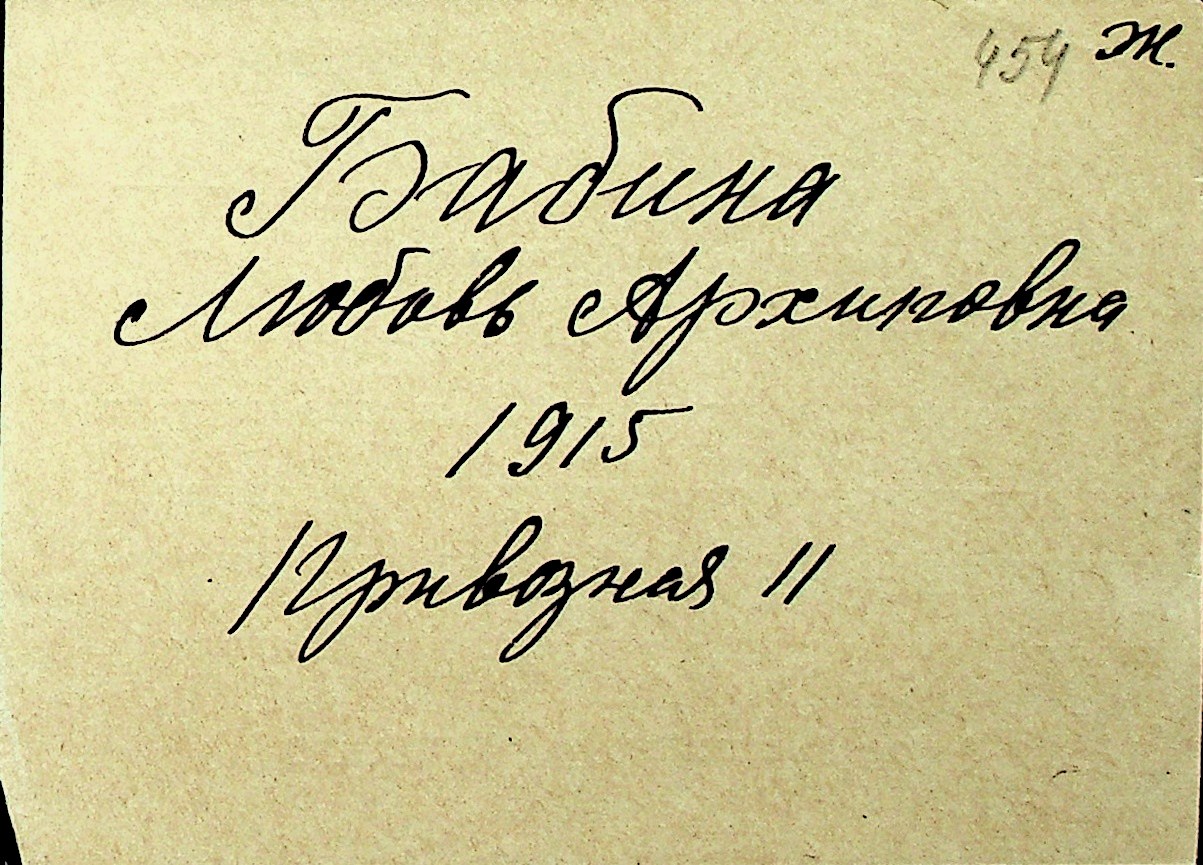 454 Ж.
Бабина
Любовь Архиповна
1915
Привозная 11